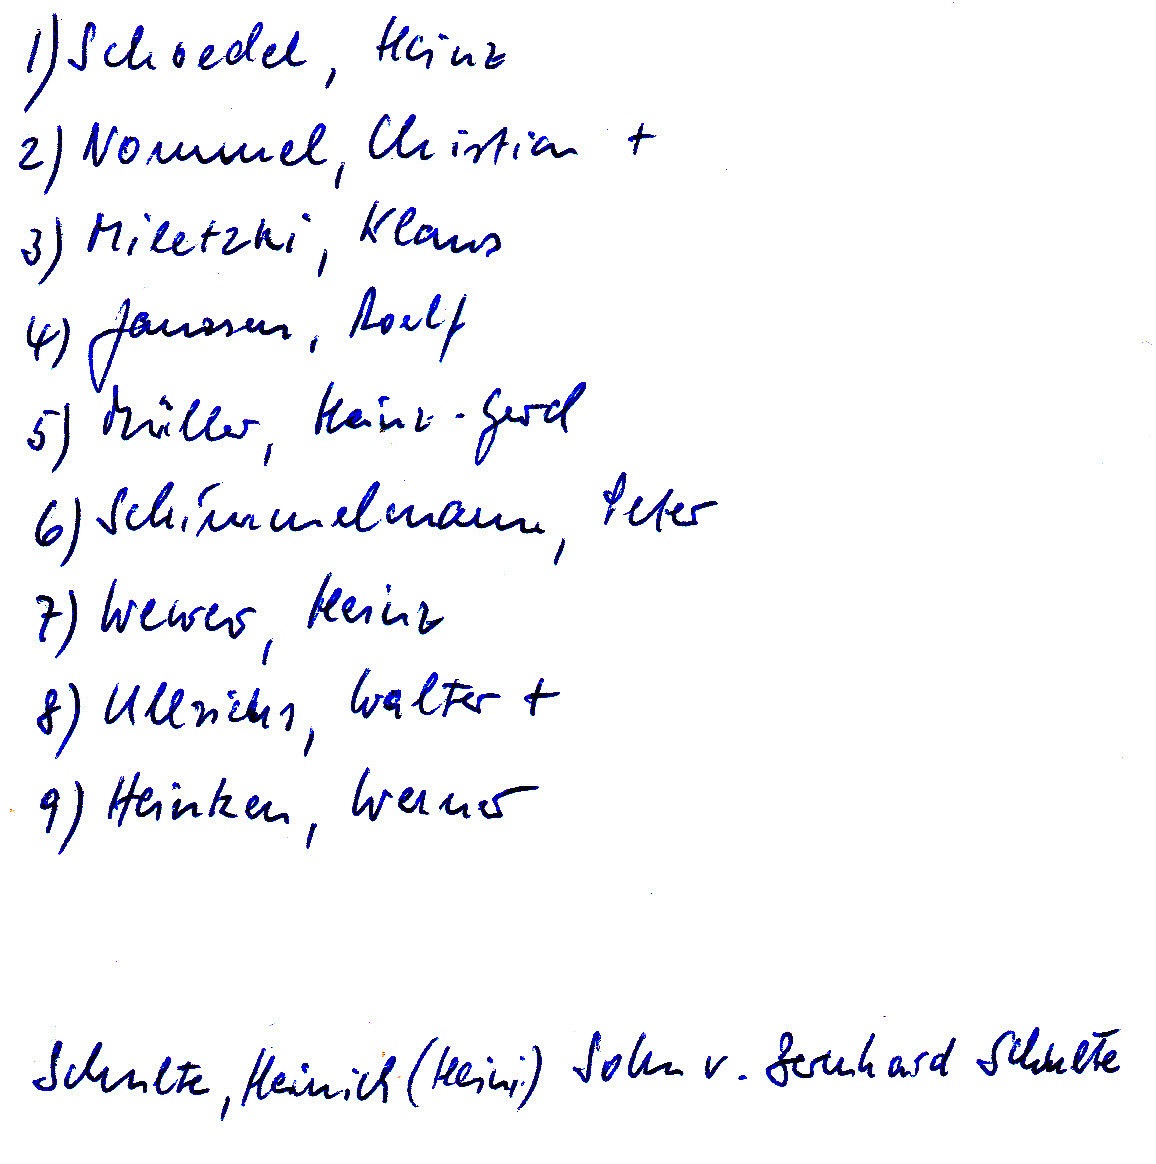 1) Schoedel, Heinz
2) Nommel, Christian +
3) Miletzki, Klaus
4) Janssen, Roelf
5) Müller, Heinz-Gerd
6) Schimmelmann, Peter
7) Wewer, Heinz
8) Ullrichs, Walter +
9) Heinken, Werner
Schulte, Heinrich (Heini) Sohn v. Bernhard Schulte